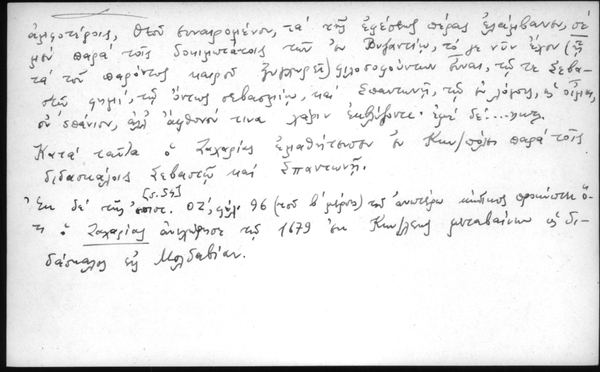 ἀμφοτέροις, Θεοῦ συναιρομένου, τὰ τῆς ἐφέσεως πέρας ἐλάμβανον, σὲ
μὲν παρὰ τοῖς δοκιμωτάτοις τῶν ἐν Βυζαντίῳ, τό γε νῦν ἔχον (
τὰ τοῦ παρόντος καιροῦ ) φιλοσοφούντων εἶναι, τῷ τε Σεβα-
στῷ φημί, τῷ ὄντως σεβασμίῳ, καὶ Σπαντωνῇ, τῷ ἐν λόγοις, ὡς οἶμαι,
οὐ σπάνιον, ἀλλ' ἄφθονόν τινα χάριν ἐκβλύζοντι· ἐμὲ δέ... κτλ.
Κατὰ ταῦτα ὁ Ζαχαρίας ἐμαθήτευσεν ἐν Κων/πόλει παρὰ τοῖς
διδασκάλοις Σεβαστῷ καὶ Σπαντωνῇ.
[σ. 54]
Ἐκ δὲ τῆς ἐπιστ. ΟΖ', φύλ. 96 (τοῦ β' μέρους) τοῦ ἀνωτέρω κώδικος προκύπτει ὅ-
τι ὁ Ζαχαρίας ἀνεχώρησε τῷ 1679 ἐκ Κων/λεως μεταβαίνων ὡς δι-
δάσκαλος εἰς Μολδαβίαν.